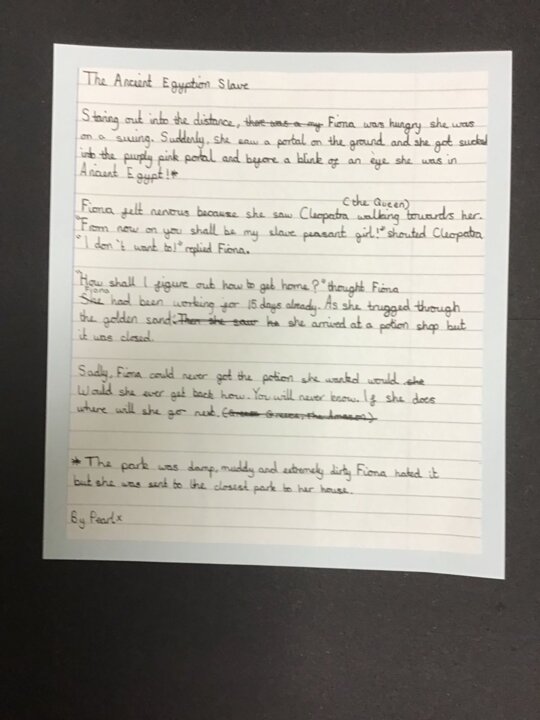 The Ancient Egyption Slave
Staring out into the distance, there was a my Fiona was hungry she was
on a swing. Suddenly, she saw a portal on the ground and she got sucked
into the purply pink portal and before a blink of an eye she was in
Ancient Egypt!*
(the Queen)
Fiona felt nervous because she saw Cleopatra walking towards her.
"From now on you shall be my slave peasant girl!" shouted Cleopatra
"I don't want to!" replied Fiona.
"How shall I figure out how to get home?" thought Fiona
Fiona
She had been working for 15 days already. As she trugged through
the golden sand. Then she saw he she arrived at a potion shop but
it was closed.
Sadly, Fiona could never got the potion she wanted would she
Would she ever get back how. You will never know. If she does
where will she go next. (Greece, The Amazon)
* The park was damp, muddy and extremely dirty Fiona hated it
but she was sent to the closest park to her house.
By Pearl x